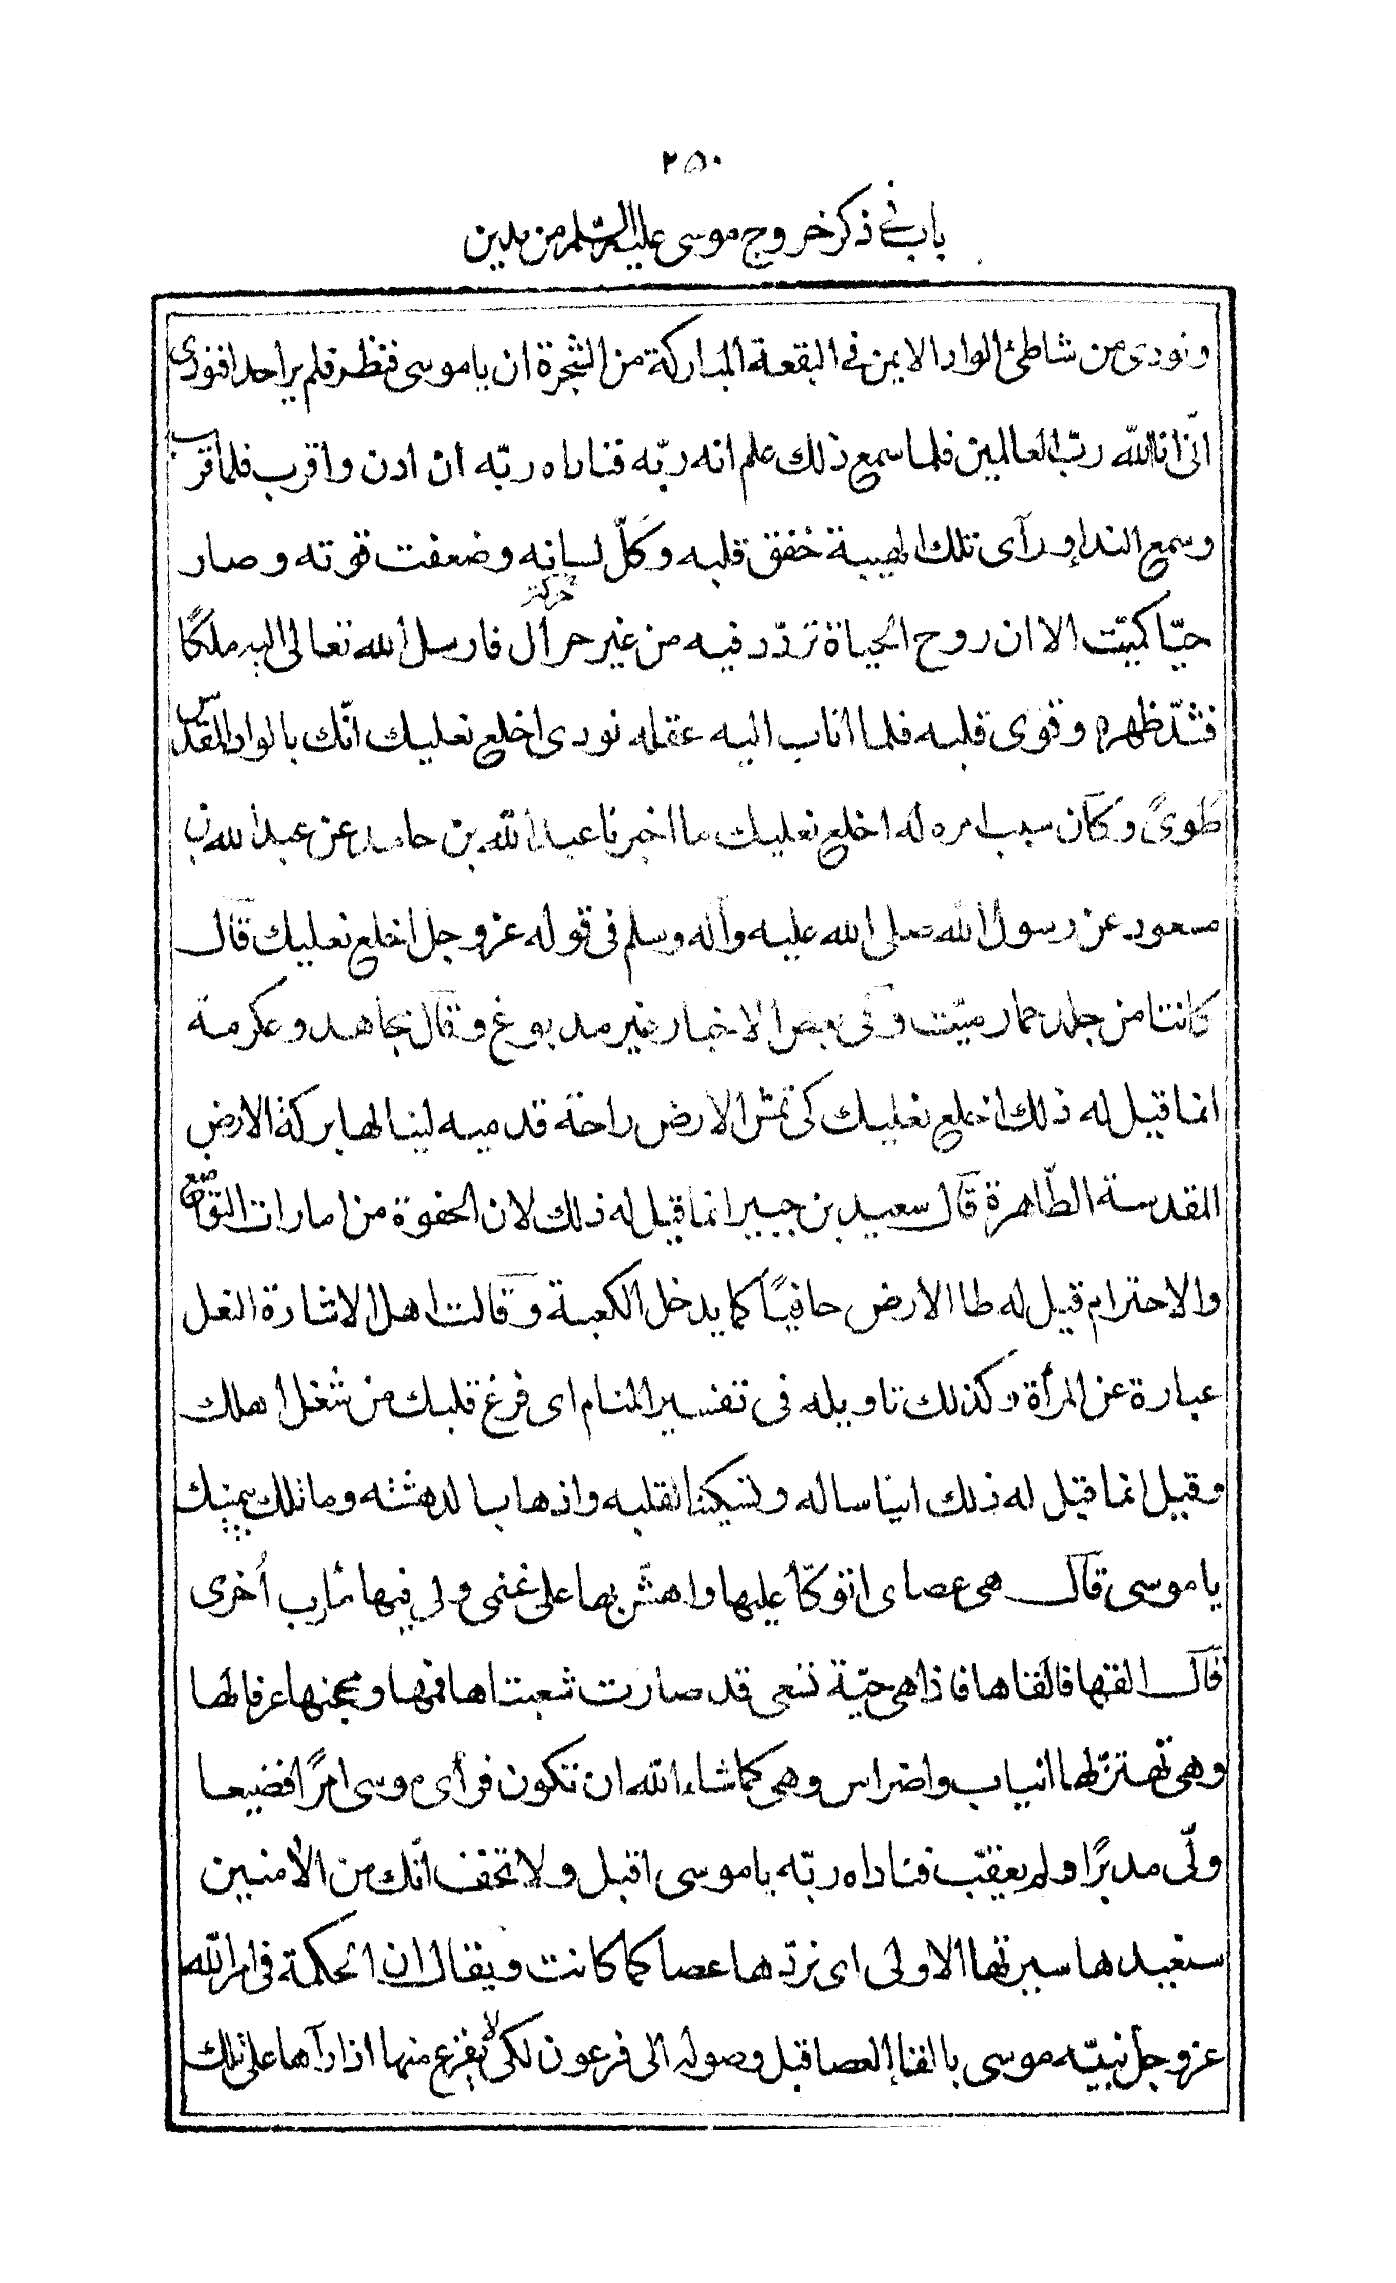 ٢٥٠
باب في ذكر خروج موسى عليه السّلم من مدين
ونودى من شاطئ الواد الايمن في البقعة المباركة من الشجرة ان يا موسى فنظر فلم ير احدا فنودى
انّى انا الله ربّ العالمين فلما سمع ذلك علم انه ربّه فناداه ربّه ان ادن واقرب فلما قرب
وسمع النداء ورآى تلك الهيبة خفق قلبه وكَلّ لسانه وضعفت قوته وصار
حيّا كميّت الا ان روح الحياة تردّد فيه من غير حراك حركة فارسل الله تعالى اليه ملكًا
فشدّ ظهره وقوى قلبه فلما اناب اليه عقله نودى اخلع نعليك انّك بالواد المقدس
طوىً وكان سبب امره له اخلع نعليك ما اخبرنا عبد الله بن حامد عن عبد الله بن
مسعود عن رسول الله صلى الله عليه وآله وسلم فى قوله عز وجل اخلع نعليك قال
كانتا من جلد حمار ميّت وفى بعض الاخبار غير مدبوغ وقال مجاهد وعكرمة
انما قيل له ذلك اخلع نعليك كى تمسّ الارض راحة قدميه لينالها بركة الارض
المقدسة الطّاهرة قال سعيد بن جبير انما قيل له ذلك لان الحفوة من امارات التواضع
والاحترام قيل له طا الارض حافيًا كما يدخل الكعبة وقالت اهل الاشارة النعل
عبارة عن المرأة وكذلك تاويله فى تفسير المنام اى فرغ قلبك من شغل أهلك
وقيل انما قيل له ذلك ايناسا له وتسكينا لقلبه واذهابا لدهشته وما تلك بيمينك
يا موسى قال هى عصاى اتوكّأ عليها واهشّ بها على غنمى ولى فيها مأرب أخرى
قال القها فالقاها فاذا هى حيّة تسعى قد صارت شعبتاها فمها ومحجنها عرفا لها
وهى تهتزّ لها انياب واضراس وهى كما شاء الله ان تكون فرأى موسى امرًا فضيعا
ولّى مدبرًا ولم يعقّب فناداه ربّه يا موسى اقبل ولا تخف انّك من الآمنين
سنعيدها سيرتها الاولى اى نردّها عصا كما كانت ويقال ان الحكمة فى امر الله
عز وجل نبيّه موسى بالقاء العصا قبل وصوله الى فرعون لكى لا يفزع منها اذا رآها على تلك